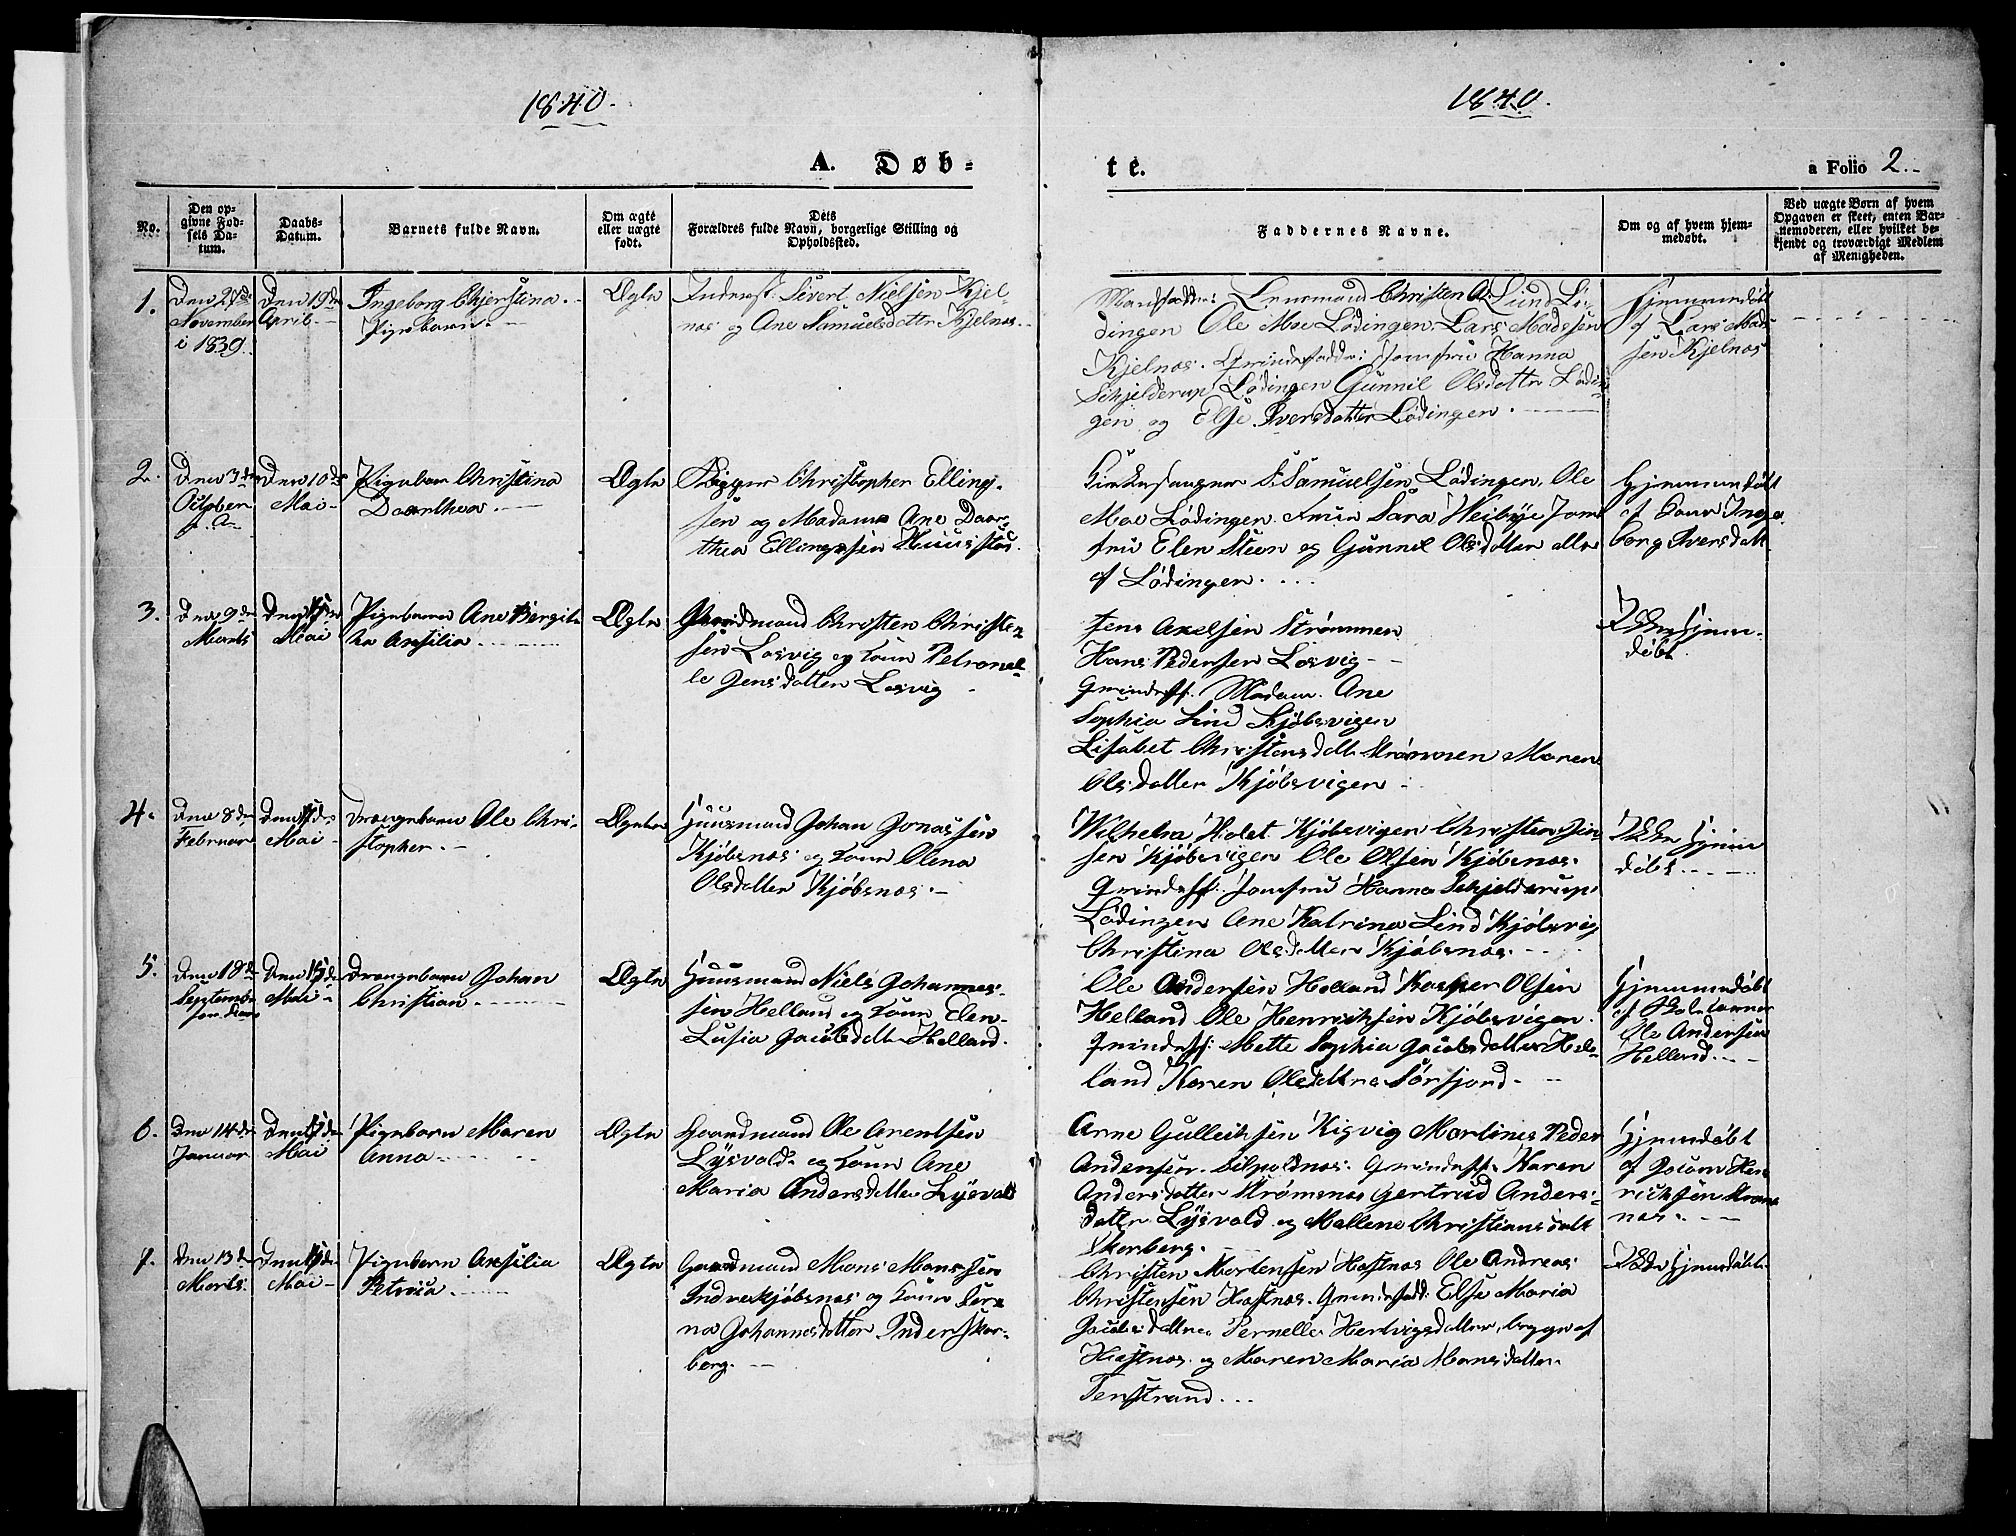 1840.
1840.
A. Døb-
te.
a Folio 2.
No.
Den op-
givne Fød-
sels Da-
tum.
Daabs-
Datum.
Barnets fulde Navn.
Om ægte
eller uægte
født.
Dets
Forældres fulde Navn, borgerlige Stilling og
Opholdssted.
Faddernes Navne.
Om og af hvem hjem-
medøbt.
Ved uægte Børn af hvem
Opgaven er skeet, enten Bar-
nemoderen, eller hvilket be-
kjendt og troværdigt Medlem
af Menigheden.
1.
November
i 1839.
Den 19de
April
Ingeborg Chjerstina
Pigebarn
Ægte
Sivert Nielsen Kjel-
nes og Ane Samuelsdatter Kjelnes
Lensmand Christen A. Lund Lø-
dingen Ole Moe Lødingen, Lars Madssen
Kjelnes. Jomfru Hanna
Schjelderup Lødingen Gunnil Olsdatter Lødin-
gen og Else Iversdatter Lødingen.
Hjemmedøbt
af Lars Mad-
sen Kjelnes
2.
Den 3die
October
f. A.
Den 10de
Mai
Pigebarn Christina
Daarthea
Ægte
Christopher Elling-
sen og Madame Ane Daar-
thea Ellingsen
Kirkesanger S. Samuelsen Lødingen, Ole
Moe Lødingen. Sara Weibye Jom-
fru Elen Steen og Gunnil Olsdatter alle
af Lødingen
Hjemmedøbt
af Inge-
borg Iversdatt
3.
Den 9de
Marts
Mai
Pigebarn Ane Bergit-
ha Axsilia
Ægte
Gaardmand Christen Christen-
sen Losvig og Kone Petronel-
le Jensdatter Losvig
Jens Axelsen Strømmen
Hans Pedersen Losvig
Madam Ane
Sophia Lind Kjøbsvigen
Lisabet Christensdatt Strømmen Maren
Olsdatter Kjøbsvigen
Ikke Hjem-
døbt
4.
Den 8de
Februar
Mai
Drengebarn Ole Chri-
stopher
Ægte
Huusmand Johan Jonassen
Kjøbsnes og Kone Olena
Olsdatter Kjøbsnes
Holst Kjøbsvigen Christen Jen-
sen Kjøbsvigen Ole Olsen Kjøbsnes
Jomfru Hanna Schjelderup
Lødingen Ane Katrina Lind Kjøbsvig
Christina Olsdatter Kjøbsnes
Ikke Hjem-
døbt
5.
Den 18de
Septemb
Mai
Drengebarn Johan
Christian
Ægte
Huusmand Niels Johannes-
sen Helland og Kone Elen
Lusia Jacobsdatter Helland
Ole Andersen Helland Kasper Olsen
Helland Ole Henriksen Kjøbsvigen
Mette Sophia Jacobsdatter Hel-
land Karen Olsdatter Sørfjord
Hjemmedøbt
af Skolelærer
Ole Andersen
Helland
6.
Den 14de
Januar
Mai
Pigebarn Maren
Anna
Ægte
Gaardmand Ole Arentsen
Lysvold og Kone Ane
Maria Andersdatter Lysvold
Arne Gulleiksen Martines Peder
Andersen. Karen
Andersdatter Strømsnes Gertrud Anders-
datter Lysvold og Mallene Christiansdatt
Skarberg
Hjemdøbt
af Jocum Hen-
richsen
nes
7.
Den 13de
Marts
Mai
Pigebarn Axsilia
Petrica
Ægte
Gaardmand Mons Monssen
Indrekjøbsnes og Kone Sere-
na Johannesdatter Inderskar-
berg
Christen Mortensen Hastnes Ole Andreas
Christensen Hastnes. Else Maria
Jacobsdatter Pernelle Hertvigsdatter, begge af
Hastnes og Maren Maria Monsdatter
Fenstrand
Ikke Hjemdøbt